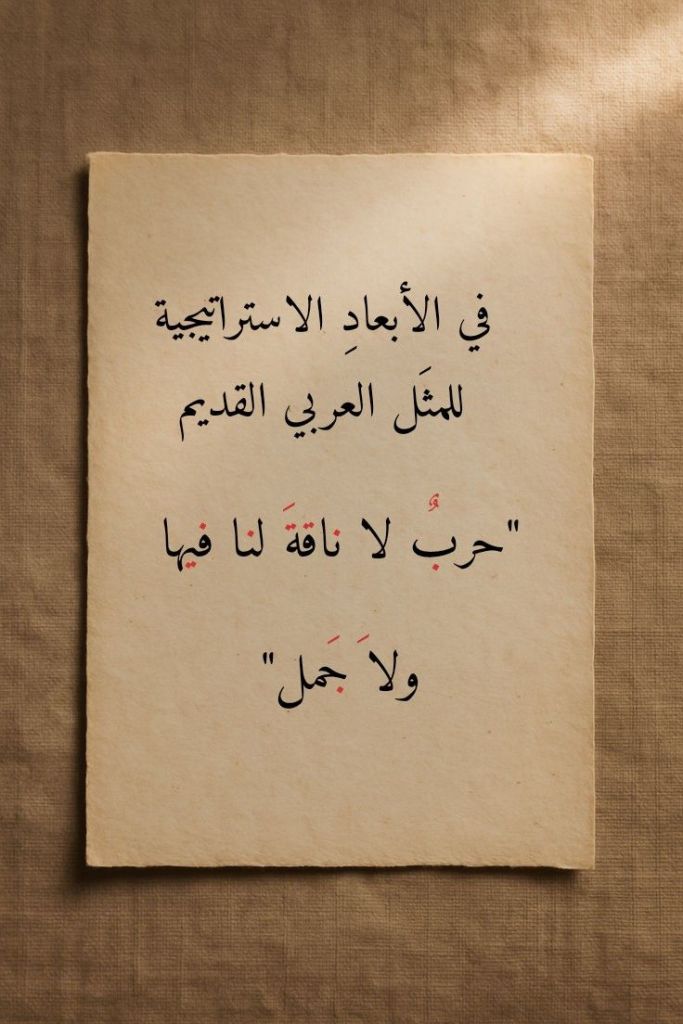 في الأبعادِ الاستراتيجية
للمثَل العربي القديم
"حربٌ لا ناقةَ لنا فيها
ولاَ جَمل"